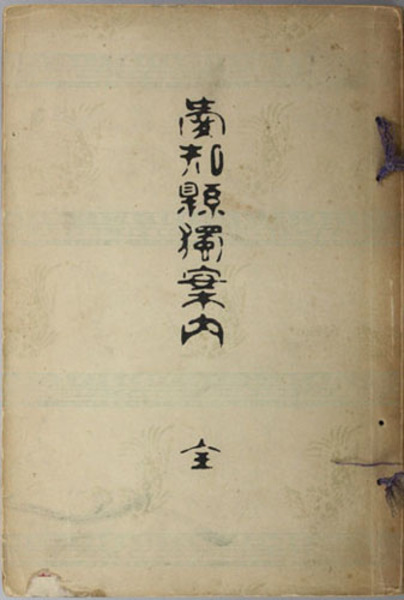 愛知縣獨案内
全